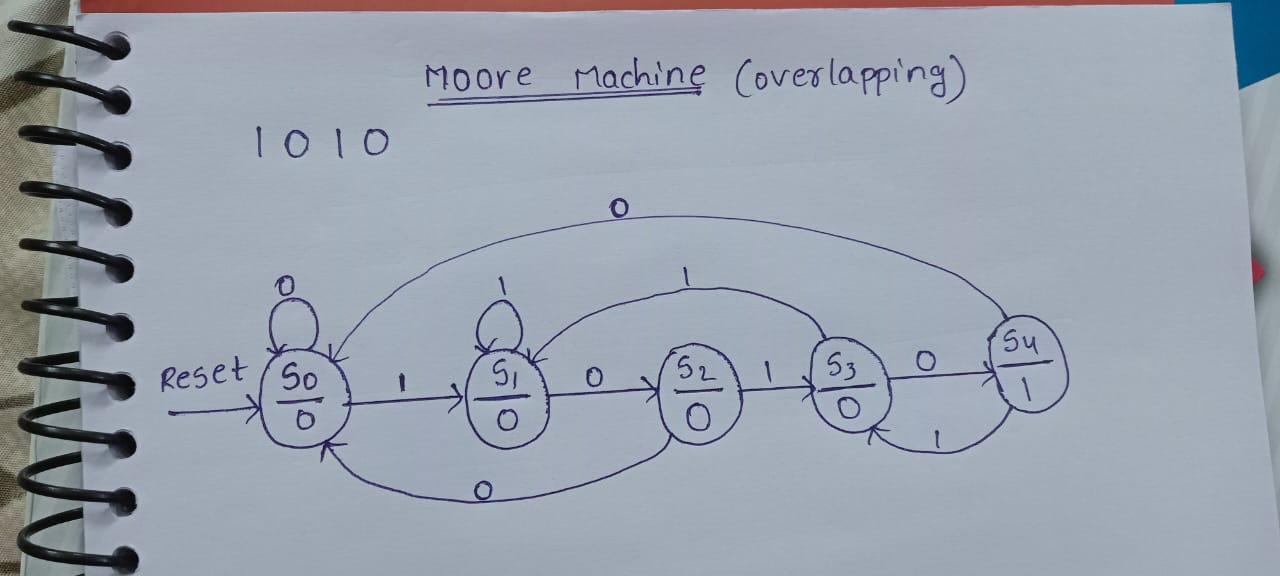 Moore Machine (overlapping)
1 0 1 0
0
1
0 1
Reset
S0 0
1
S1 0
0
S2 0
1
S3 0
0
S4 1
1
0